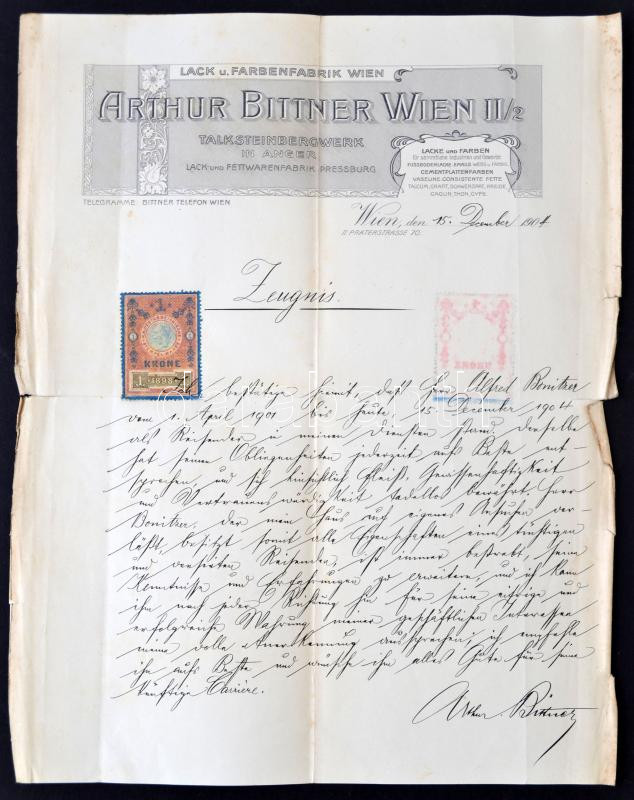 LACK u. FARBENFABRIK WIEN
ARTHUR BITTNER WIEN II/2
TALKSTEINBERGWERK
IN ANGER
LACK- UND FETTWARENFABRIK PRESSBURG
LACKE UND FARBEN
für sämmtliche Industrien und Gewerbe
FUSSBODENLACKE-EMAILS WEISS u. FARBIG,
CEMENTPLATTENFARBEN
VASELINE-CONSISTENTE FETTE
TALCUM, GRAFIT, SCHWERSPAT, KREIDE,
CAOLIN, THON, GYPS.
TELEGRAMME: BITTNER TELEFON WIEN
Wien, den 15. December 1904
II PRATERSTRASSE 70.
Zeugnis.
1
KRONE
1 1898
KRONE
Ich bestätige hiemit, daß Herr Alfred Bonitzer
vom 1. April 1901 bis heute, 15. December 1904
als Reisender in meinen Diensten stand. Derselbe
hat seine Obliegenheiten jederzeit aufs Beste ent
sprochen, und sich hinsichtlich Fleiß, Gewissenhaftigkeit
und Vertrauenswürdigkeit tadellos bewährt. Herr
Bonitzer, der mein Haus auf eigenes Ansuchen ver-
läßt, besitzt somit alle Eigenschaften eines tüchtigen
und versierten Reisenden, ist immer bestrebt, seine
Kenntnisse und Erfahrungen zu erweitern, und ich kann
ihm nach jeder Richtung hin für seine eifrige und
erfolgreiche Wahrung meiner geschäftlichen Interessen
meine volle Anerkennung aussprechen; ich empfehle
ihn aufs Beste und wünsche ihm alles Gute für seine
künftige Carrière.
Arthur Bittner